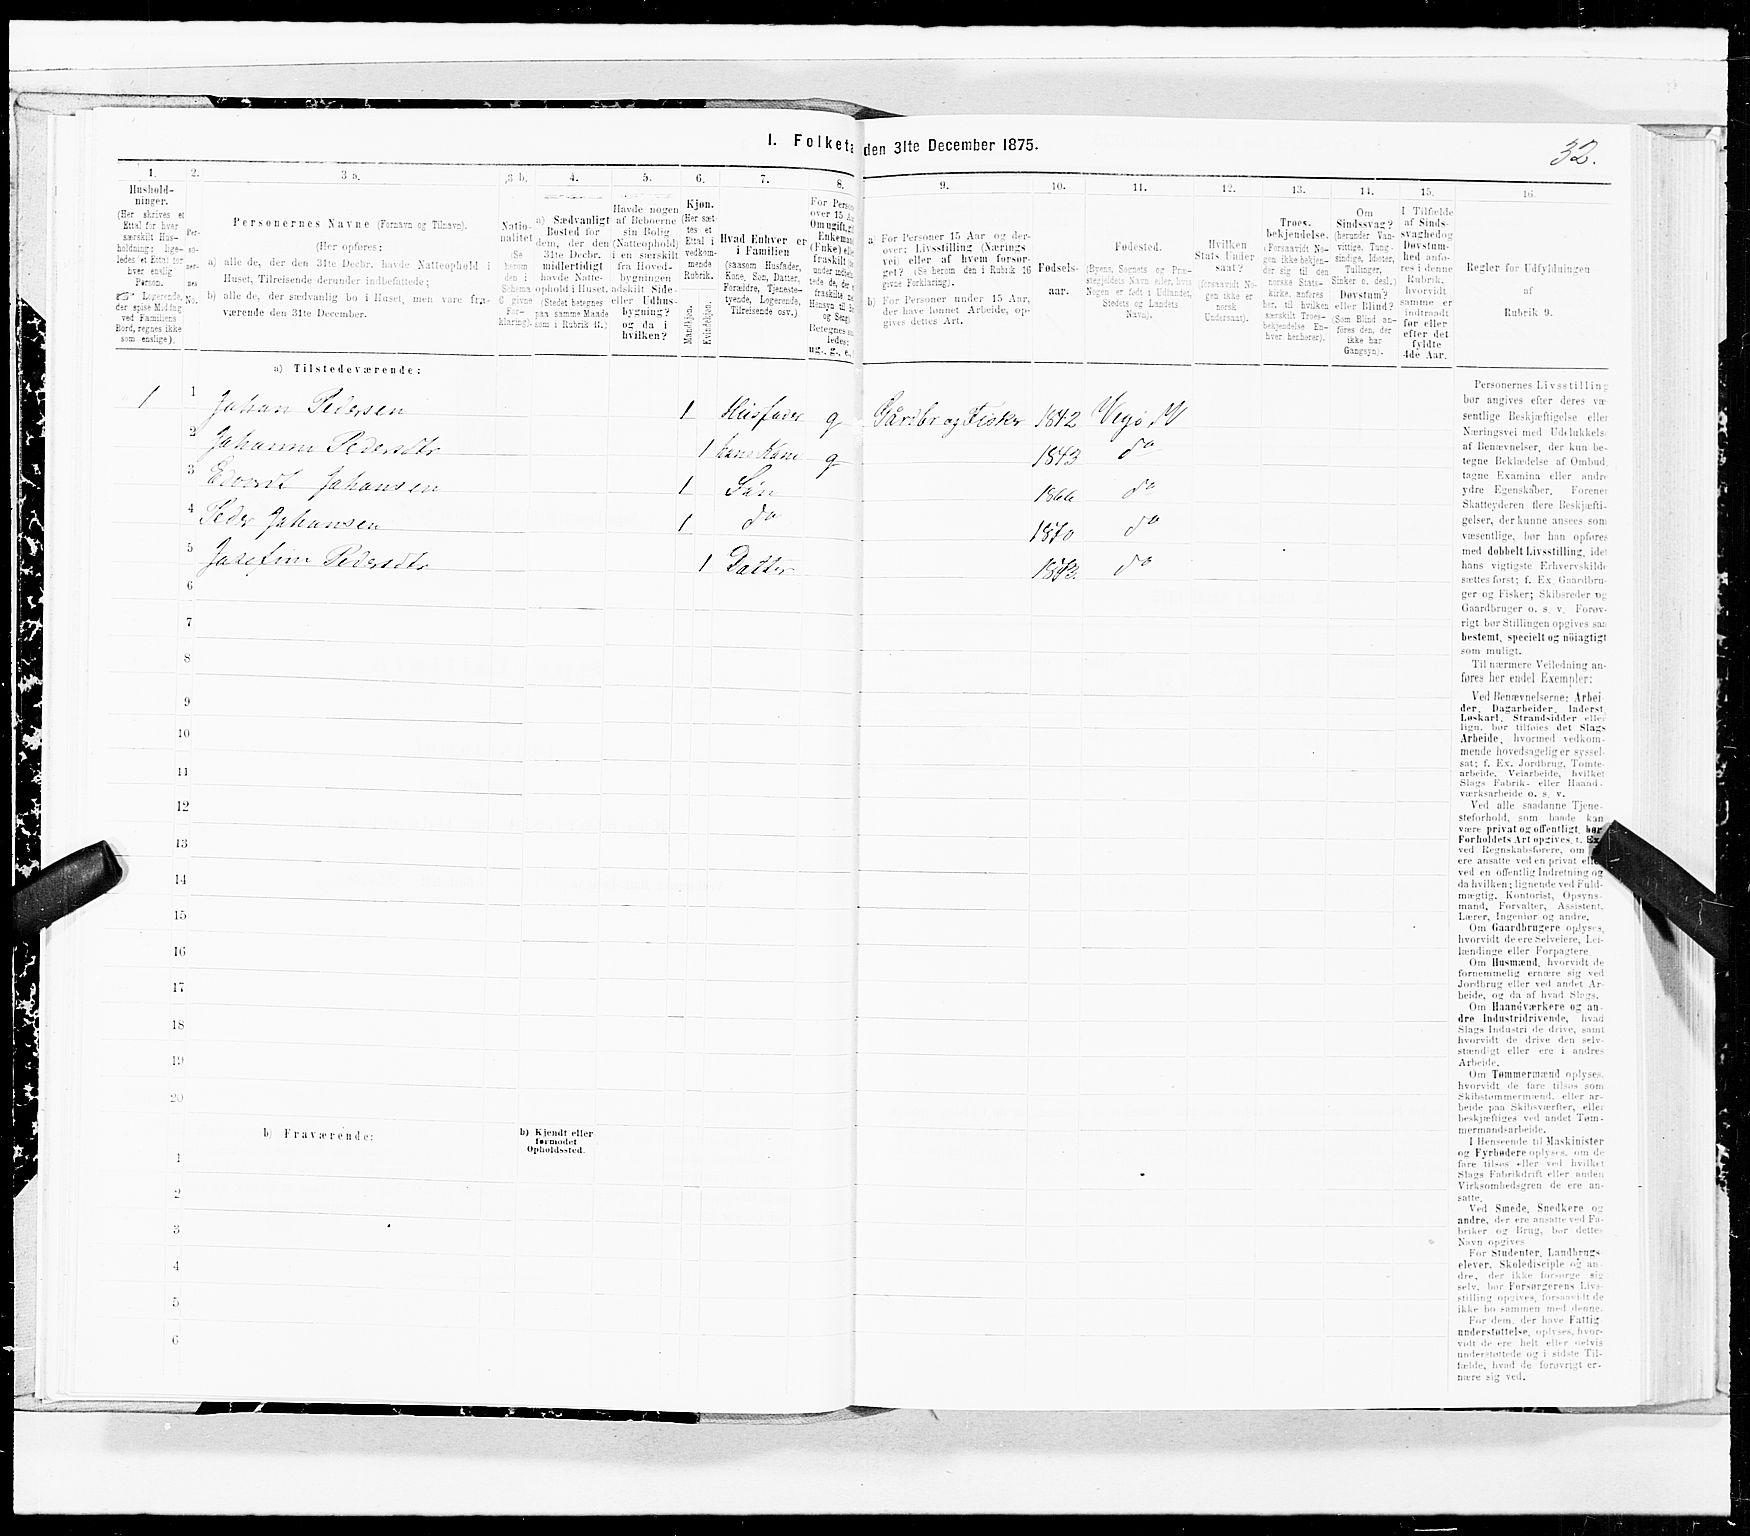 I. Folketa den 31te December 1875.
32.
1.
2.
3 a.
3 b.
4.
5.
6.
7.
8.
9.
10.
11.
12.
13.
14.
15.
16.
Hushold-
ninger.
(Her skrives et
Ettal for hver
særskilt Hus-
holdning; lige-
ledes et Ettal for
hver enslig
Person.
Logerende,
der spise Middag
ved Familiens
Bord, regnes ikke
som enslige).
Per-
so-
ner-
nes
No.
Personernes Navne (Fornavn og Tilnavn).
(Her opføres:
a) alle de, der den 31te Decbr. havde Natteophold i
Huset, Tilreisende derunder indbefattede;
b) alle de, der sædvanlig bo i Huset, men vare fra-
værende den 31te December.
Natio-
nalitet
(Se
herom
den i
Schema
C givne
For-
klaring).
a) Sædvanligt
Bosted for
dem, der den
31te Decbr.
midlertidigt
havde Natte-
ophold i Huset.
(Stedet betegnes
paa samme Maade
som i Rubrik 11.)
Havde nogen
af Beboerne
sin Bolig
(Natteophold)
i en særskilt
fra Hoved-
bygningen
adskilt Side-
eller Udhus-
bygning?
og da i
hvilken?
Kjøn.
(Her sæt-
tes et
Ettal i
vedkom-
mende
Rubrik.
Mandkjøn.
Kvindekjøn.
Hvad Enhver er
i Familien
(saasom Husfader,
Kone, Søn, Datter,
Forældre, Tjeneste-
tyende, Logerende,
Tilreisende osv.)
For Perso
over 15 Aa
Om ugift, gi
Enkeman
(Enke) elle
fraskilt
under
tede de, der
fraskilte
Hensyn til
og Seng).
Betegnes
ledes:
ug., g., e.,
a) For Personer 15 Aar og der-
over: Livsstilling (Nærings
vei) eller af hvem forsør-
get? (Se herom den i Rubrik 16
givne Forklaring).
b) For Personer under 15 Aar,
der have lønnet Arbeide, op-
gives dettes Art.
Fødsels-
aar.
Fødested.
(Byens, Sognets og Præ-
stegjeldets Navn eller, hvis
Nogen er født i Udlandet,
Stedets og Landets
Navn).
Hvilken
Stats Under
saat?
(forsaavidt No-
gen ikke er
norsk
Undersaat).
Troes-
bekjendelse.
(Forsaavidt No-
gen ikke bekjen-
der sig til den
norske Stats-
kirke, anføres
her, til hvilken
særskilt Troes-
bekjendelse En-
hver henhører).
Om
Sindssvag?
(herunder Van-
vittige, Tung-
sindige, Idioter,
Tullinger,
Sinker o. desl.)
Døvstum?
eller Blind?
(Som Blind an-
føres den, der
ikke har
Gangsyn).
I Tilfælde
af Sinds-
svaghed og
Døvstum-
hed anfø-
res i denne
Rubrik,
hvorvidt
samme er
indtraadt
før eller
efter det
fyldte
4de Aar.
Regler for Udfyldningen
af
Rubrik 9.
a) Tilstedeværende:
1 1 Johan Pedersen 1 Husfader g Gårdbr og Fisker 1842 Vegø
2 Johanne Pedersdtr 1 hans Kone g 1843 do
3 Edvardt Johansen 1 Søn 1866 do
4 Peder Johansen 1 do 1870 do
5 Josefine Pedersdtr 1 Datter 1873 do
6
7
8
9
10
11
12
13
14
15
16
17
18
19
20
b) Fraværende:
b) Kjendt eller
formodet
Opholdssted.
1
2
3
4
5
6
Personernes Livsstilling
bør angives efter deres væ
sentlige Beskjæftigelse eller
Næringsvei med Udelukkels
af Benævnelser, der kun be-
tegne Beklædelse af Ombud,
tagne Examina eller andre
ydre Egenskaber. Forener
Skatteyderen flere Beskjæfti-
gelser, der kunne ansees som
væsentlige, bør han opføres
med dobbelt Livsstilling, idet
hans vigtigste Erhvervskilde
sættes først; f. Ex. Gaardbru-
ger og Fisker; Skibsreder og
Gaardbruger o. s. v. Forøv-
rigt bør Stillingen opgives saa
bestemt, specielt og nöiagtigt
som muligt.
Til nærmere Veiledning an-
føres her endel Exempler:
Ved Benævnelserne: Arbei-
der, Dagarbeider, Inderst,
Løskarl, Strandsidder eller
lign. bør tilføies det Slags
Arbeide, hvormed vedkom-
mende hovedsagelig er syssel-
sat; f. Ex. Jordbrug, Tomte-
arbeide, Veiarbeide, hvilket
Slags Fabrik- eller Haand-
værksarbeide o. s. v.
Ved alle saadanne Tjene-
steforhold, som baade kan
være privat og offentligt, bør
Forholdets Art opgives, f. Ex.
ved Regnskabsførere, om
ere ansatte ved en privat elle
ved en offentlig Indretning og
da hvilken; lignende ved Fuld-
mægtig, Kontorist, Opsyns-
mand, Forvalter, Assistent,
Lærer, Ingeniør og andre.
Om Gaardbrugere oplyses,
hvorvidt de ere Selveiere, Lei-
lændinge eller Forpagtere.
Om Husmænd, hvorvidt de
fornemmelig ernære sig ved
Jordbrug eller ved andet Ar-
beide, og da af hvad Slags.
Om Haandværkere og an-
dre Industridrivende, hvad
Slags Industri de drive, samt
hvorvidt de drive den selv-
stændigt eller ere i andres
Arbeide.
Om Tømmermænd oplyses,
hvorvidt de fare tilsøs som
Skibstømmermænd, eller ar-
beide paa Skibsværfter, eller
beskjæftiges ved andet Tøm-
mermandsarbeide.
I Henseende til Maskinister
og Fyrbødere oplyses, om de
fare tilsøs eller ved hvilket
Slags Fabrikdrift eller anden
Virksomhedsgren de ere an-
satte.
Ved Smede, Snedkere og
andre, der ere ansatte ved Fa-
briker og Brug, bør dettes
Navn opgives
For Studenter, Landbrugs-
elever, Skoledisciple og an-
dre, der ikke forsørge sig
selv, bør Forsørgerens Livs-
stilling opgives, forsaavidt de
ikke bo sammen med denne.
For dem, der have Fattig-
understøttelse, oplyses, hvor-
vidt de ere helt eller delvis
understøttede og i sidste Til-
fælde, hvad de forøvrigt er-
nære sig ved.